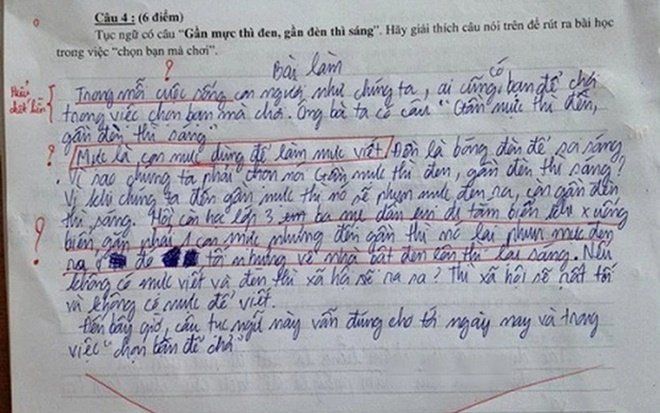 Câu 4 : (6 điểm)
Tục ngữ có câu “Gần mực thì đen, gần đèn thì sáng”. Hãy giải thích câu nói trên để rút ra bài học
trong việc “chọn bạn mà chơi”.
?
Bài làm
Trong mỗi cuộc sống con người như chúng ta, ai cũng có bạn để chơi
trong việc chọn bạn mà chơi. Ông bà ta có câu “Gần mực thì đen,
gần đèn thì sáng”
? Mực là con mực dùng để làm mực viết. Đèn là bóng đèn để
sáng
. Vì sao chúng ta phải chọn nơi Gần mực thì đen, gần đèn thì sáng?
Vì khi chúng ta đến gần mực thì nó sẽ phun mực đen ra, còn gần đèn
thì sáng. Hồi còn học lớp 3 em ba mẹ dẫn em đi tắm biển khi xuống
? biển gần phải 1 con mực nhưng đến gần thì nó lại phun mực đen
ra tối nhưng về nhà bật đèn lên thì lại sáng. Nếu
không có mực viết và đèn thì xã hội sẽ ra sao? Thì xã hội sẽ rất tối
và không có mực để viết.
Đến bây giờ, câu tục ngữ này vẫn đúng cho tới ngày nay và trong
việc “chọn bạn để chơi”